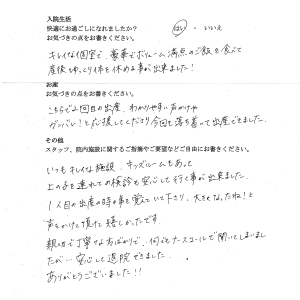 入院生活
快適にお過ごしになれましたか? はい ・ いいえ
お気づきの点をお書きください。
キレイな個室で、豪華でボリューム満点のご飯を食べて
産後ゆっくり体を休める事が出来ました!
お産
お気づきの点をお書きください。
こちらで二回目の出産、わかりやすい声かけや
ガンバレ!と応援してくださり今回も落ち着いて出産できました。
その他
スタッフ、院内施設に関するご指摘やご要望などご自由にお書きください。
いつもキレイな施設、キッズルームもあって
上の子を連れての検診も安心して行く事が出来ました。
1人目の出産の時の事を覚えていて下さり、大きくなったね!と
声をかけて頂けて嬉しかったです。
親切で丁寧な方ばかりで、何回もナースコールで聞いてしまいまし
たが…安心して退院できました。
ありがとうございました!!